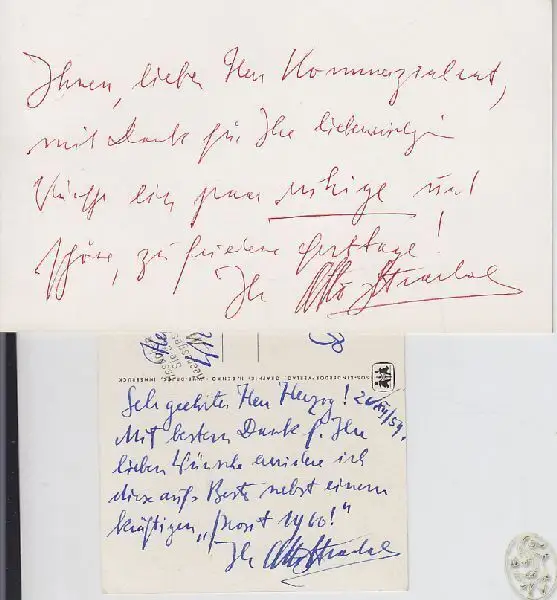 Ihnen, lieber Herr Kommerzialrat,
mit Dank für Ihre liebenswürdigen
Wünsche ein paar ruhige und
schöne, zufriedene Festtage!
Ihr Otto Strobel
Sehr geehrter Herr Herzog!
Mit bestem Dank f. Ihre
lieben Wünsche erwidere ich
diese aufs Beste nebst einem
kräftigen „Prosit 1960!"
Ihr